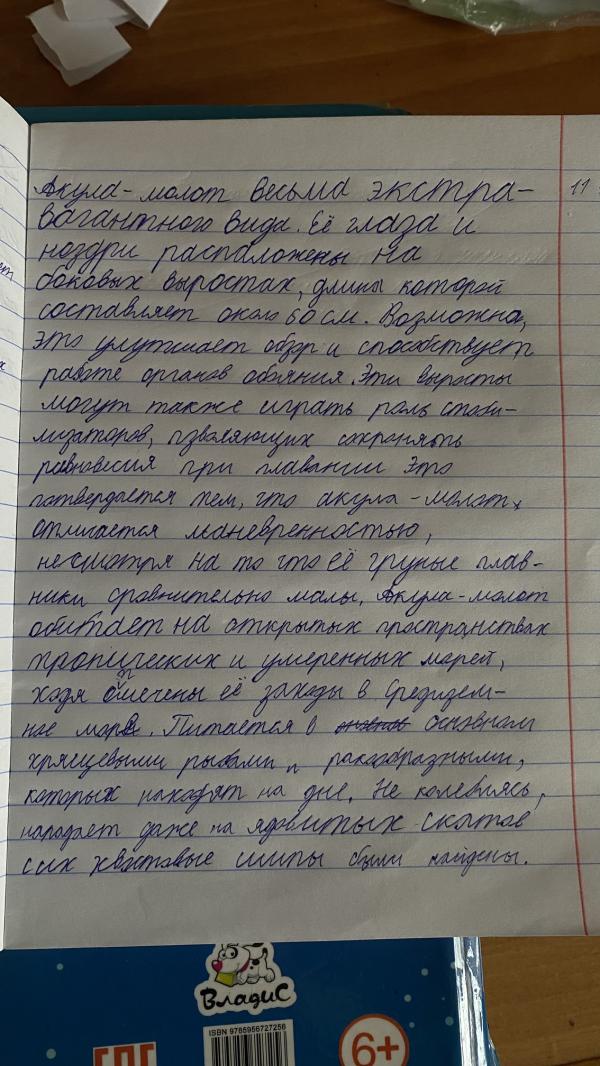 Акула-молот весьма экстра-
вагантного вида. Её глаза и
ноздри распалажены на
боковых выростах, длины которой
составляет около 60 см. Возможна,
это улутшает обзор и способствует
работе органов обаяния. Эти выросты
могут также играть роль стаби-
лизаторов, пзваляющих сохранять
равновесия при плавании Это
патвердается тем, что акула-молот,
отличается маневренностью,
несмотря на то что её грудные плав-
ники сравнительно малы, Акула-молот
обитает на открытых пространствах
тропических и умеренных марей,
ходя отмечены её заходы в Средизем-
ное море. Питается в основном
хрящевыми рыбами и ракообразными,
которых находят на дне. Не колебляясь,
нападает даже на ядовитых скатов
сих хвостовые шипы были найдены.
11
Владис
ISBN 9785956727256
6+